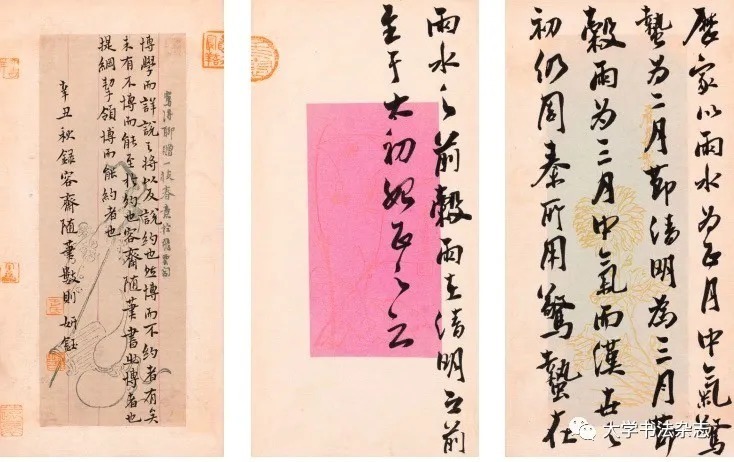 曆家以雨水为正月中氣驚
蟄为二月節清明為三月節
穀雨为三月中氣而漢世之
初仍周秦所用驚蟄在
雨水之前穀雨在清明之前
至于太初始正之云
博學而詳說之將以反說約也然博而不約者有矣
未有不博而能至於約也容齋随筆書此博者也
提綱挈領博而能約者也
辛丑秋録容齋随筆數則妍鈺
大学书法杂志